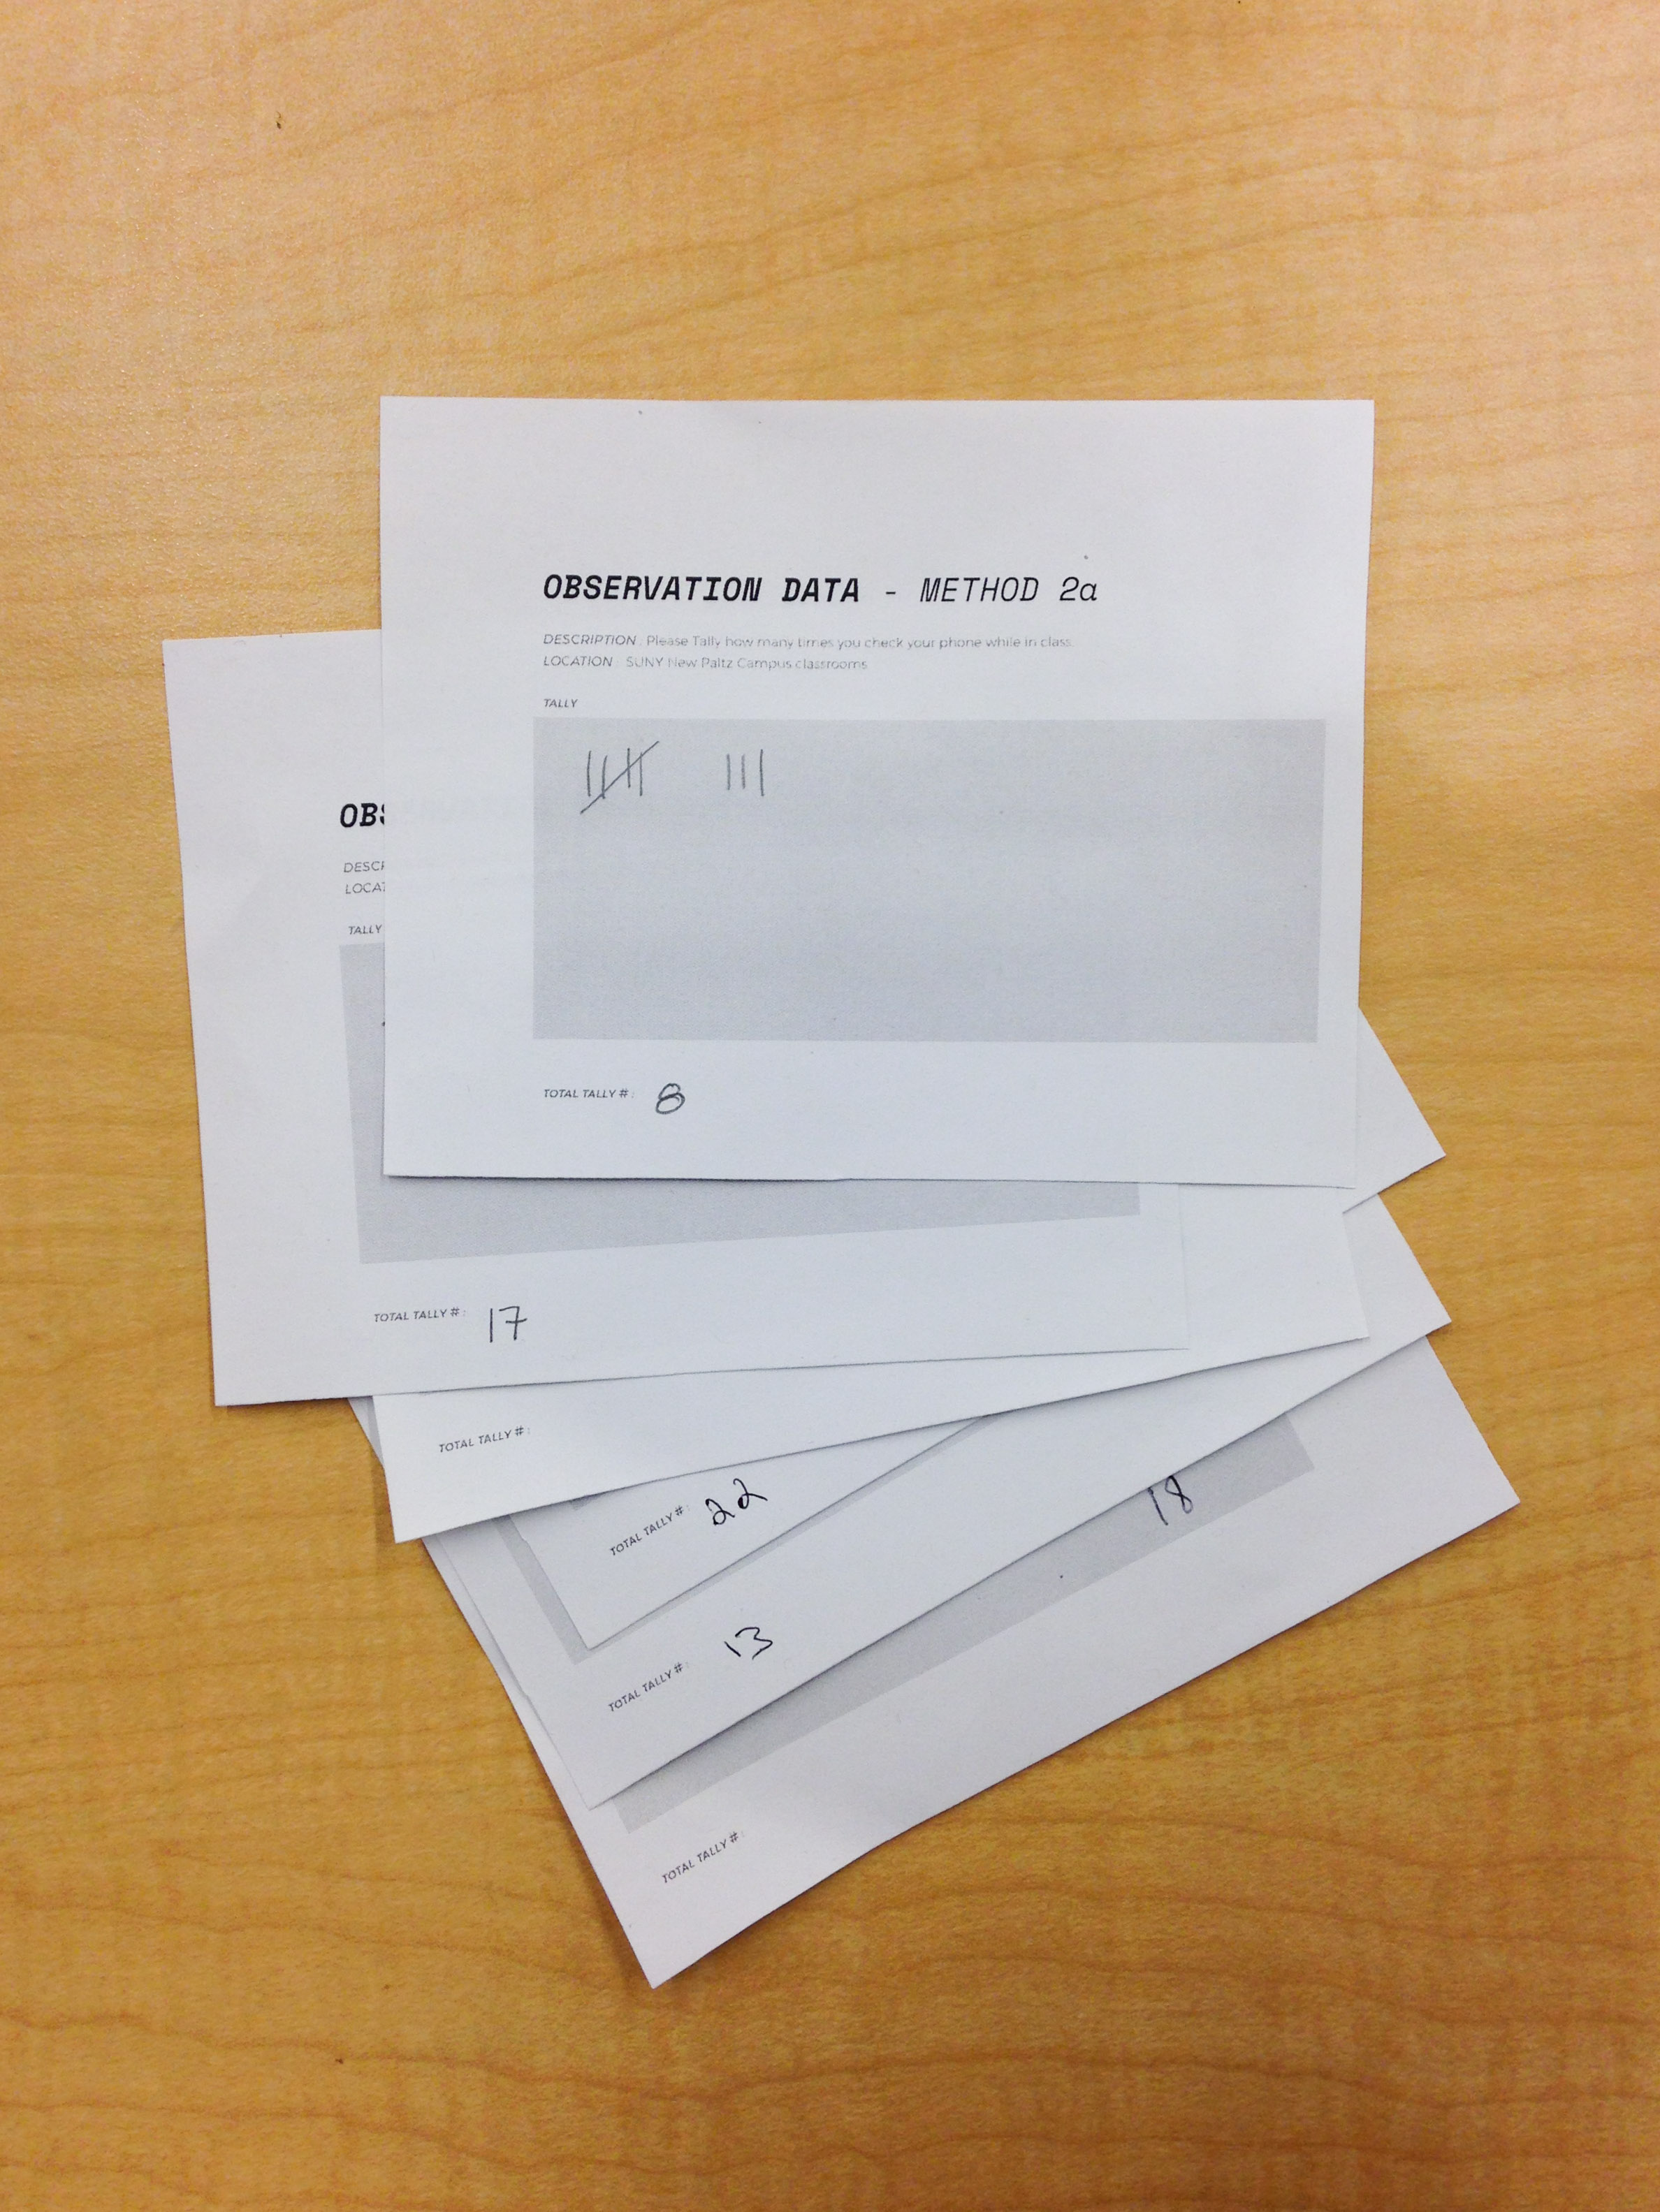 OBSERVATION DATA - METHOD 2a
DESCRIPTION : Please Tally how many times you check your phone while in class.
LOCATION : SUNY New Paltz Campus classrooms
TALLY
TOTAL TALLY # : 8
OBS
DESCR
LOCAT
TALLY
TOTAL TALLY # : 17
TOTAL TALLY # :
TOTAL TALLY # : 22
TOTAL TALLY # : 13
18
TOTAL TALLY # :